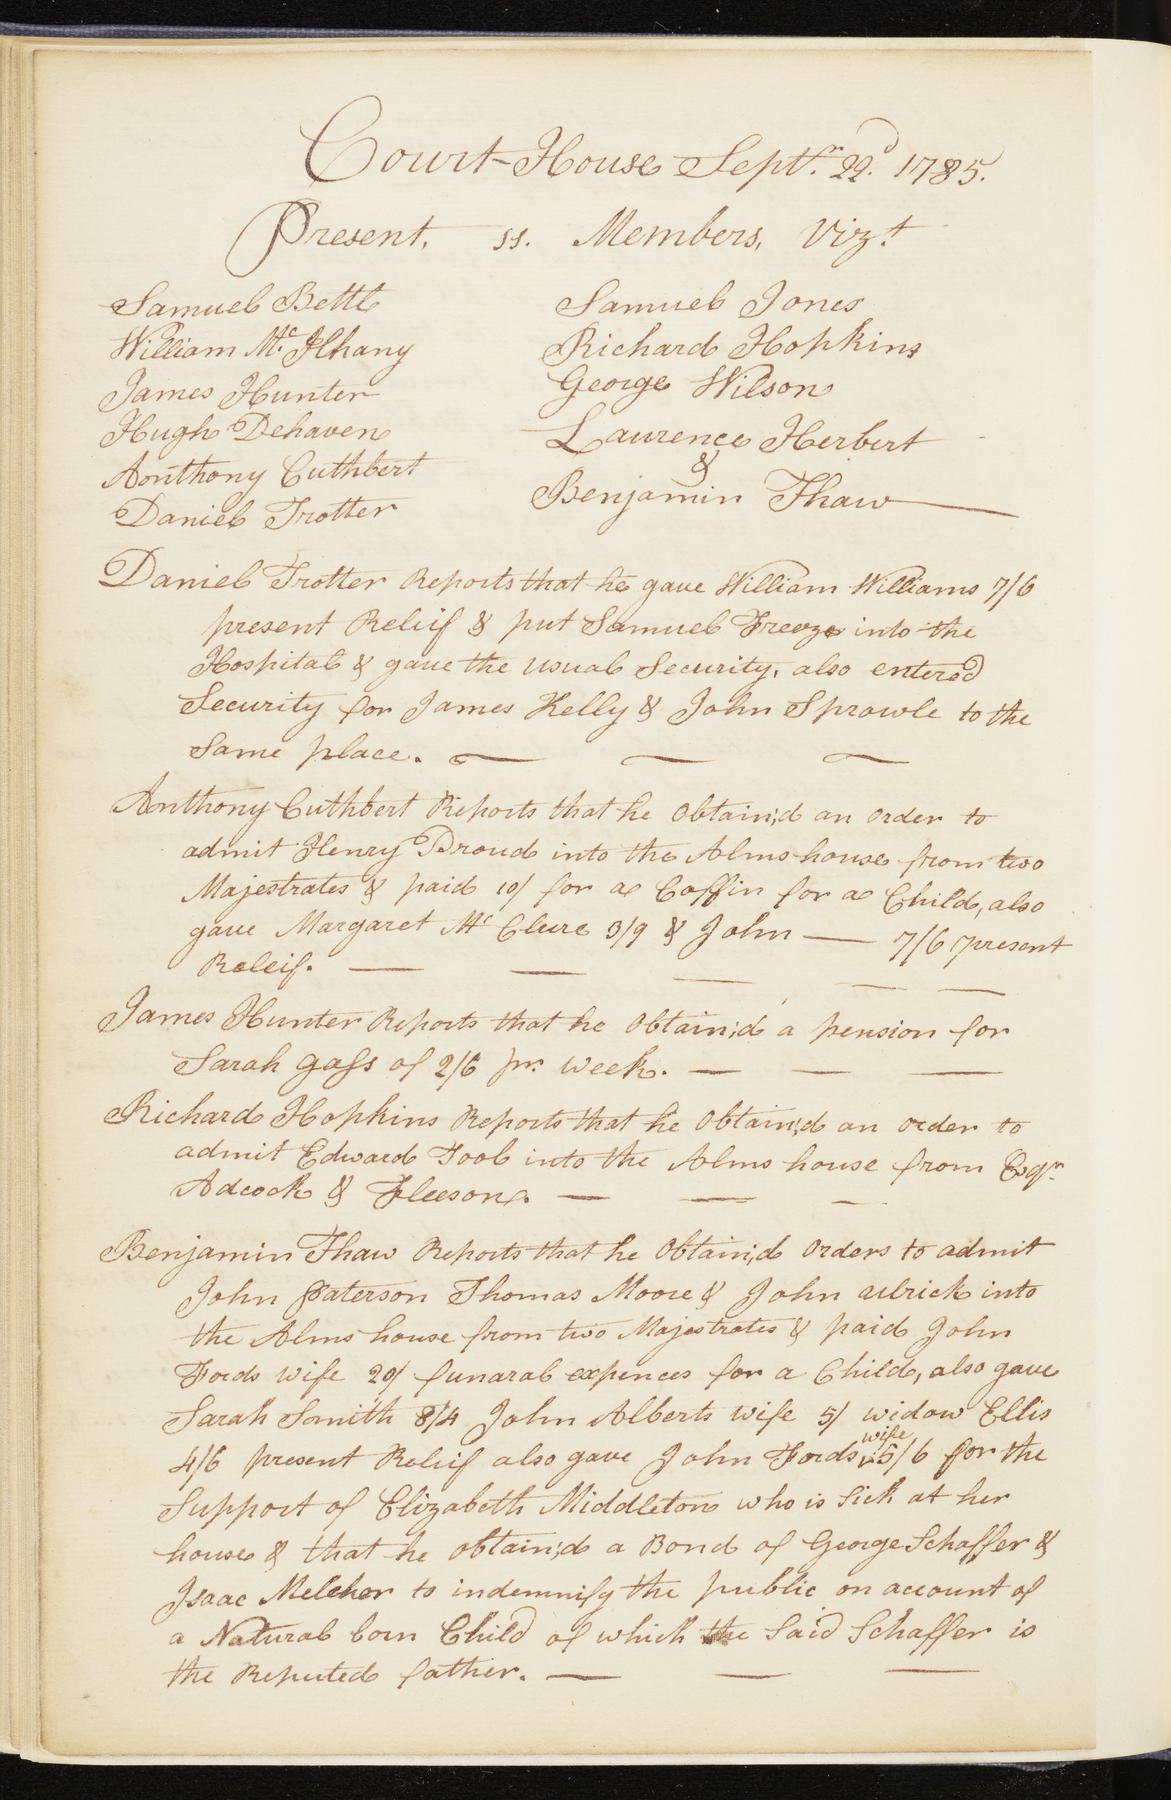 Court-House Septr. 22d. 1785.
Present, 11. Members, Vizt.
Samuel Bettle
William Mc. Ilhany
James Hunter
Hugh Dehaven
Anthony Cuthbert
Daniel Trotter
Samuel Jones
Richard Hopkins
George Wilson
Laurence Herbert
&
Benjamin Thaw
Daniel Trotter Reports that he gave William Williams 7/6
present Releif & put Samuel Freeze into the
Hospital & gave the usual Security, also entered
Security for James Kelly & John Sprowle to the
Same place.
Anthony Cuthbert Reports that he obtain'd an order to
admit Henry Proud into the Alms house from two
Majestrates & paid 10/ for a Coffin for a Child, also
gave Margaret Mc Clure 3/9 & John — 7/6 present
Releif.
James Hunter Reports that he obtain'd a pension for
Sarah gass of 2/6 pr. week.
Richard Hopkins Reports that he obtain'd an order to
admit Edward Tool into the Alms house from Esqrs.
Adcock & Fleeson.
Benjamin Thaw Reports that he obtain'd orders to admit
John Paterson Thomas Moore & John ulrick into
the Alms house from two Majestrates & paid John
Fords wife 20/ funaral expences for a Child, also gave
Sarah Smith 8/4 John Alberts wife 5/ widow Ellis
4/6 present Releif also gave John Fords wife 5/6 for the
Support of Elizabeth Middleton who is Sick at her
house & that he obtain'd a Bond of George Schaffer &
Isaac Melcher to indemnify the public on account of
a Natural born Child of which the Said Schaffer is
the Reputed father.